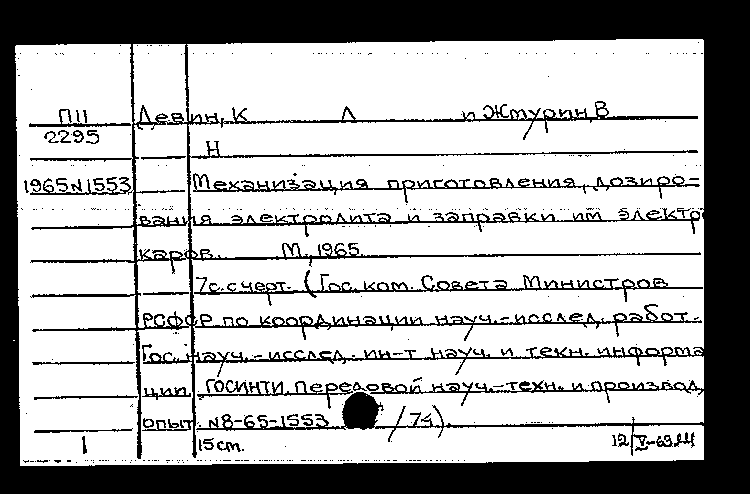 П11 Левин, К Л и Жмурин, В
2295
Н
1965 N1553 Механизация приготовления, дозиро-
вания электролита и заправки им электро
каров. М., 1965
7с. с черт. (Гос. ком. Совета Министров
РСФСР по координации науч.-исслед. работ.
Гос. науч.-исслед. ин-т науч. и техн. информа
ции. ГОСИНТИ. Передовой науч.-техн. и производ.
опыт. N8-65-1553 /74).
1 15 cm. 12/V-69